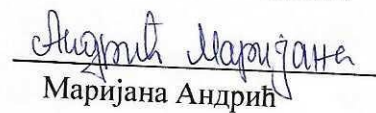 Андрић Маријана
Маријана Андрић